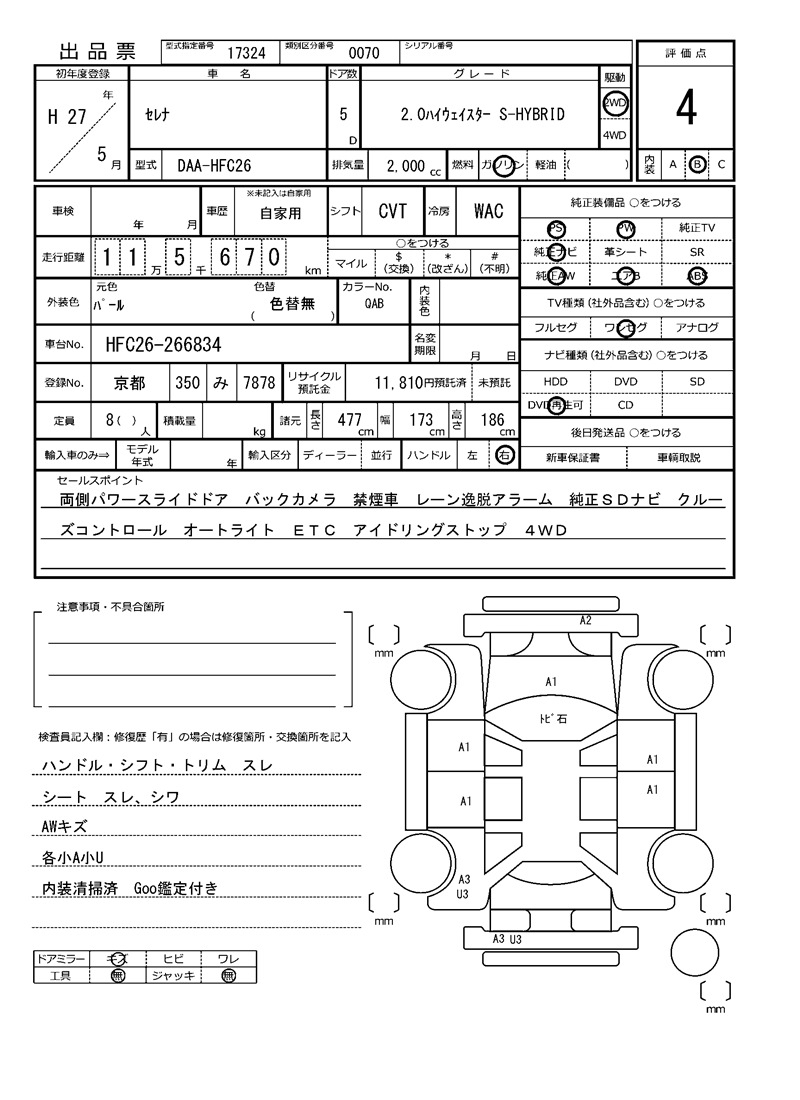 出品票 型式指定番号 17324 類別区分番号 0070 シリアル番号
評価点
初年度登録 車名 ドア数 グレード 駆動
H 27 年 5 月 セレナ 5 D 2.0ハイウェイスター S-HYBRID 2WD 4WD
4
型式 DAA-HFC26 排気量 2.000 cc 燃料 ガソリン 軽油 ( )
内装 A B C
車検 年 月 車歴 ※未記入は自家用 自家用 シフト CVT 冷房 WAC
走行距離 1 1 万 5 千 6 7 0 km ○をつける マイル $ (交換) * (改ざん) # (不明)
外装色 元色 パール 色替 ( 色替無 ) カラーNo. QAB 内装色
車台No. HFC26-266834 名変期限 月 日
登録No. 京都 350 み 7878 リサイクル預託金 11,810円預託済 未預託
定員 8 ( ) 人 積載量 kg 諸元 長さ 477 cm 幅 173 cm 高さ 186 cm
輸入車のみ⇒ モデル年式 年 輸入区分 ディーラー 並行 ハンドル 左 右
純正装備品 ○をつける
PS PW 純正TV
純正ナビ 革シート SR
純正AW エアB ABS
TV種類 (社外品含む) ○をつける
フルセグ ワンセグ アナログ
ナビ種類 (社外品含む) ○をつける
HDD DVD SD
DVD再生可 CD
後日発送品 ○をつける
新車保証書 車輌取説
セールスポイント
両側パワースライドドア バックカメラ 禁煙車 レーン逸脱アラーム 純正SDナビ クルー
ズコントロール オートライト ETC アイドリングストップ 4WD
注意事項・不具合箇所
検査員記入欄:修復歴「有」の場合は修復箇所・交換箇所を記入
ハンドル・シフト・トリム スレ
シート スレ、シワ
AWキズ
各小A小U
内装清掃済 Goo鑑定付き
ドアミラー キズ ヒビ ワレ
工具 無 ジャッキ 無
A2
mm mm
A1
トビ石
A1 A1
A1 A1
A3
U3
mm mm
A3 U3
mm